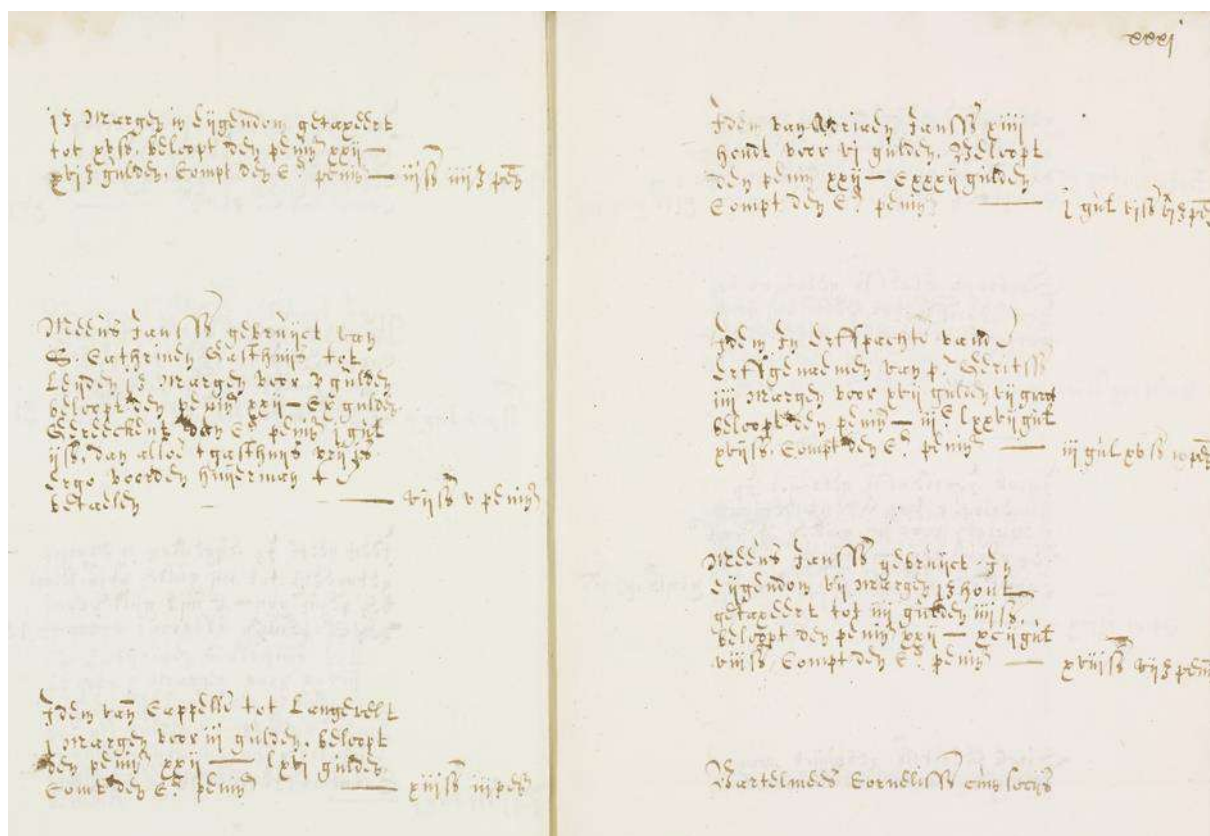 j3 margen in eijgendom getaxeert
tot xvss. beloopt den penin xxij —
xvj3 gulden. Compt den C. penin — iijss iiij3 pen
Meeus Janss gebruijct van
S. Cathrinen Gasthuijs tot
Leijden j3 margen voor v gulden
beloopt den penin xxij — Cx gulden
Gereechent den C. penin j gul
ijss. dan alsoe tgasthuijs vrij is
ergo voorden huijerman t
betaelen — — vijss v penin
Idem van Cappelle tot Langevelt
j margen voor iij gulden. beloopt
den penin xxij — lxvj gulden
Compt den C. penin — xiijss iij pen
xxxj
Idem van Adriaen Janss xiiij
hondt voor vj gulden. Beloopt
den penin xxij — Cxxxij gulden
Compt den C. penin — j gul vjss vj3 pen
Idem In erffpachte vande
erffgenaemen van p. Gerritss
iiij margen voor xvij gulden vij groot
beloopt den penin — iij C lxxvij gul
xvijss. Compt den C. penin — iij gul xvss ix pen
Meeus Janss gebruijct In
eijgendom vij margen j3 hont
getaxeert tot iiij gulden iiijss.
beloopt den penin xxij — xcij gul
viijss. Compt den C. penin — xviijss vij3 penin
Bartelmees Cornelisz cum socijs